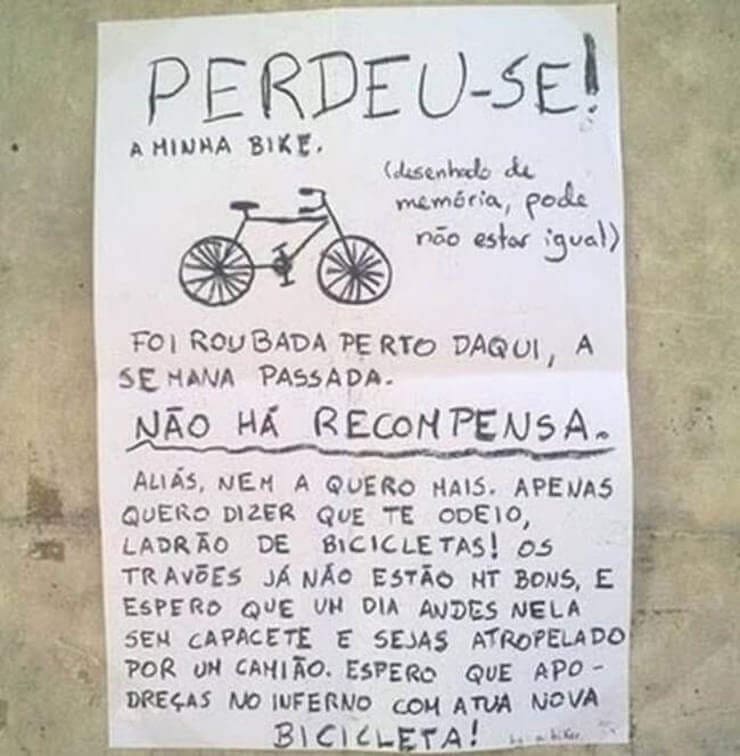 PERDEU-SE!
A MINHA BIKE.
(desenhado de
memória, pode
não estar igual)
FOI ROUBADA PERTO DAQUI, A
SEMANA PASSADA.
NÃO HÁ RECOMPENSA.
ALIÁS, NEM A QUERO MAIS. APENAS
QUERO DIZER QUE TE ODEIO,
LADRÃO DE BICICLETAS! OS
TRAVÕES JÁ NÃO ESTÃO MT BONS, E
ESPERO QUE UM DIA ANDES NELA
SEM CAPACETE E SEJAS ATROPELADO
POR UM CAMIÃO. ESPERO QUE APO-
DREÇAS NO INFERNO COM A TUA NOVA
BICICLETA!